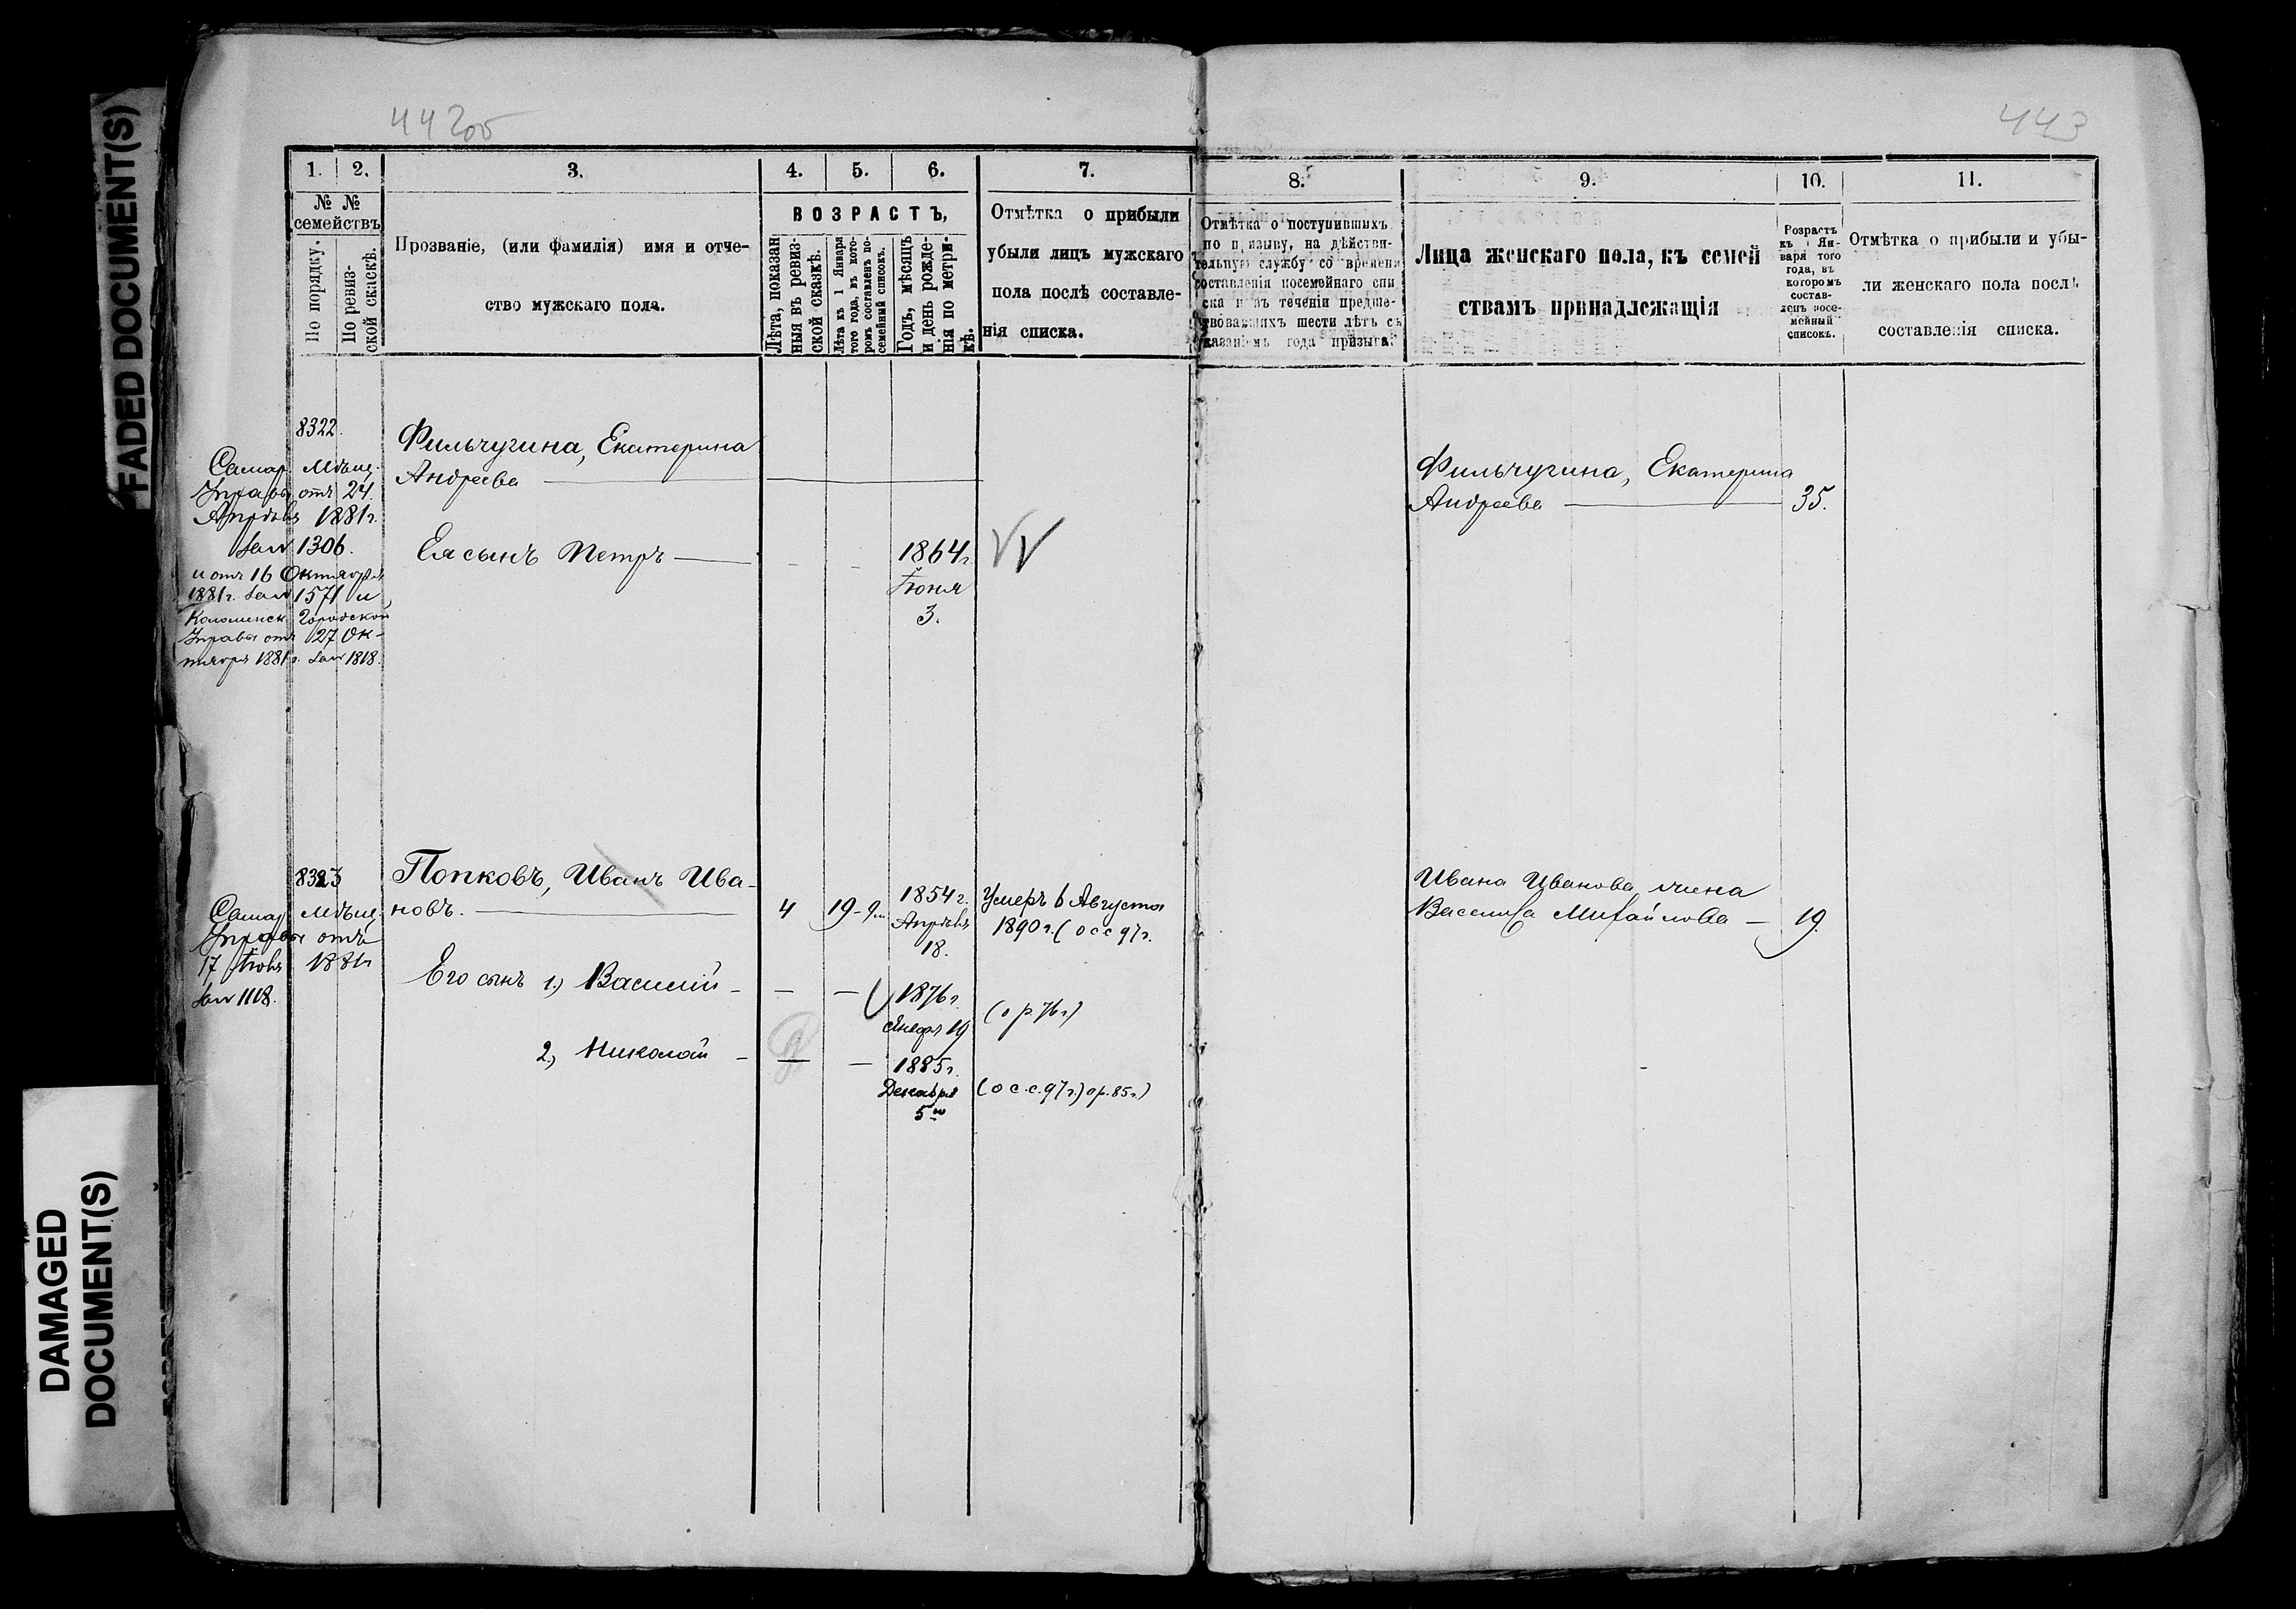 FADED DOCUMENT(S)
DAMAGED
DOCUMENT(S)
442об
443
1. 2. 3. 4. 5. 6. 7.
№ №
семействъ
По порядку.
По ревиз-
ской сказкѣ.
Прозваніе, (или фамилія) имя и отче-
ство мужскаго пола.
ВОЗРАСТЪ,
Лѣта, показан
ныя въ ревиз-
ской сказкѣ.
Лѣта къ 1 Января
того года, въ кото-
ромъ составленъ по-
семейный списокъ.
Годъ, мѣсяцъ
и день рожде-
нія по метри-
кѣ.
Отмѣтка о прибыли
убыли лицъ мужскаго
пола послѣ составле-
нія списка.
8. 9. 10. 11.
Отмѣтка о поступившихъ
по призыву, на дѣйстви-
тельную службу со времени
составленія посемейнаго спи
ска и въ теченіи предше-
ствовавшихъ шести лѣтъ съ
указаніемъ года призыва.
Лица женскаго пола, къ семей
ствамъ принадлежащія
Возрастъ
къ 1 Ян-
варя того
года, въ
которомъ
состав-
ленъ посе-
мейный
списокъ.
Отмѣтка о прибыли и убы-
ли женскаго пола послѣ
составленія списка.
8322.
Самар. Мѣщ.
Управы отъ 24.
Апрѣля 1881г.
за№ 1306.
и отъ 16 Октября
1881г. за№ 1571 и
Коломенск. Городской
Управы отъ 27 Ок-
тября 1881г. за№ 1818.
Фильчугина, Екатерина
Андреева
Ея сынъ Петръ — - - 1864г.
Іюня
3.
Фильчугина, Екатерина
Андреева — 35.
8323
Самар. Мѣщ.
Управы отъ
17 1881г
за№ 1118.
Попковъ, Иванъ Ива-
новъ. — 4 19- 1854г.
Апрѣля
18.
Умеръ 6 Августа
1890г. (о с с 97г.
Его сынъ 1.) Василій - — — 1876г.
Января 19
(о р 76г)
2.) Николай - — — 1885г.
Декабря
5го
(о с. с. 97г.) о р. 85г.)
Ивана Иванова жена
Василиса Михайлова — 19.